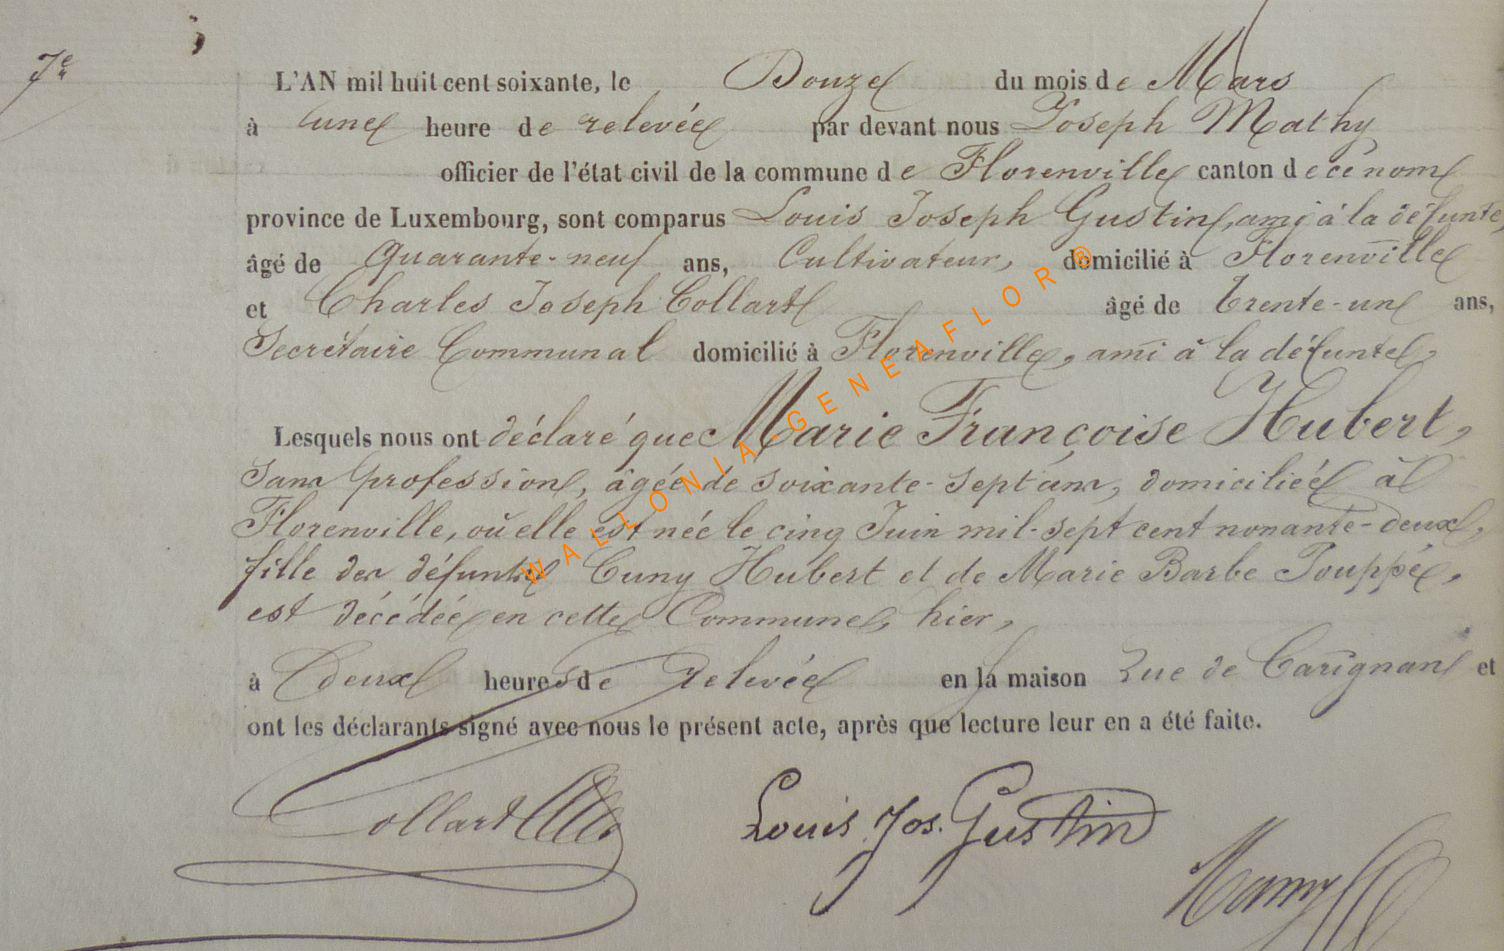 7e
L'AN mil huit cent soixante, le Douze du mois de Mars
à une heure de relevée par devant nous Joseph Mathy
officier de l'état civil de la commune de Florenville canton de ce nom
province de Luxembourg, sont comparus Louis Joseph Gustin, ami à la défunte,
âgé de quarante-neuf ans, Cultivateur, domicilié à Florenville
et Charles Joseph Collart âgé de trente-un ans,
Secrétaire Communal domicilié à Florenville, ami à la défunte,
Lesquels nous ont déclaré que Marie Françoise Hubert,
sans profession, âgée de soixante-sept ans, domiciliée à
Florenville, où elle est née le cinq Juin mil-sept cent nonante-deux,
fille des défunts Cuny Hubert et de Marie Barbe Pouppée,
est décédée en cette Commune, hier,
à deux heures de relevée en la maison Rue de Carignan et
ont les déclarants signé avec nous le présent acte, après que lecture leur en a été faite.
Collart Louis Jos. Gustin
WALLONIA-GENEAFLOR®